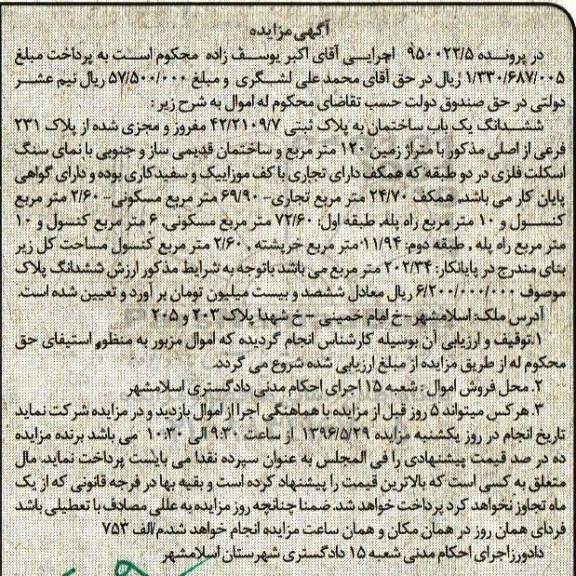 آگهی مزایده
در پرونده ۹۵۰۰۲۲/۵ اجرایی آقای اکبر یوسف زاده محکوم است به پرداخت مبلغ
۱/۳۳۰/۶۸۷/۰۰۵ ریال در حق آقای محمد علی لشگری و مبلغ ۵۷/۵۰۰/۰۰۰ ریال نیم عشر
دولتی در حق صندوق دولت حسب تقاضای محکوم له اموال به شرح زیر :
ششدانگ یک باب ساختمان به پلاک ثبتی ۴۲/۲۱۰۹/۷ مفروز و مجزی شده از پلاک ۲۳۱
فرعی از اصلی مذکور با متراژ زمین ۱۲۰ متر مربع و ساختمان قدیمی ساز و جنوبی با نمای سنگ
اسکلت فلزی در دو طبقه که همکف دارای تجاری با کف موزاییک و سفیدکاری بوده و دارای گواهی
پایان کار می باشد. همکف ۲۴/۷۰ متر مربع تجاری- ۶۹/۹۰ متر مربع مسکونی- ۲/۶۰ متر مربع
کنسول و ۱۰ متر مربع راه پله. طبقه اول: ۷۲/۶۰ متر مربع مسکونی، ۶ متر مربع کنسول و ۱۰
متر مربع راه پله . طبقه دوم: ۱۱/۹۴ متر مربع خرپشته ، ۲/۶۰ متر مربع کنسول مساحت کل زیر
بنای مندرج در پایانکار: ۲۰۲/۳۴ متر مربع می باشد باتوجه به شرایط مذکور ارزش ششدانگ پلاک
موصوف ۶/۲۰۰/۰۰۰/۰۰۰ ریال معادل ششصد و بیست میلیون تومان بر آورد و تعیین شده است.
آدرس ملک: اسلامشهر- خ امام خمینی - خ شهدا پلاک ۲۰۳ و ۲۰۵
۱.توقیف و ارزیابی آن بوسیله کارشناس انجام گردیده که اموال مزبور به منظور استیفای حق
محکوم له از طریق مزایده از مبلغ ارزیابی شده شروع می گردد.
۲. محل فروش اموال : شعبه ۱۵ اجرای احکام مدنی دادگستری اسلامشهر
۳. هر کس میتواند ۵ روز قبل از مزایده با هماهنگی اجرا از اموال بازدید و در مزایده شرکت نماید
تاریخ انجام در روز یکشنبه مزایده ۱۳۹۶/۵/۲۹ از ساعت ۹:۳۰ الی ۱۰:۳۰ می باشد برنده مزایده
ده در صد قیمت پیشنهادی را فی المجلس به عنوان سپرده نقدا می بایست پرداخت نماید. مال
متعلق به کسی است که بالاترین قیمت را پیشنهاد کرده است و بقیه بها در فرجه قانونی که از یک
ماه تجاوز نخواهد کرد پرداخت خواهد شد. ضمنا چنانچه روز مزایده به عللی مصادف با تعطیلی باشد
فردای همان روز در همان مکان و همان ساعت مزایده انجام خواهد شد.م/الف ۷۵۳
دادورز اجرای احکام مدنی شعبه ۱۵ دادگستری شهرستان اسلامشهر